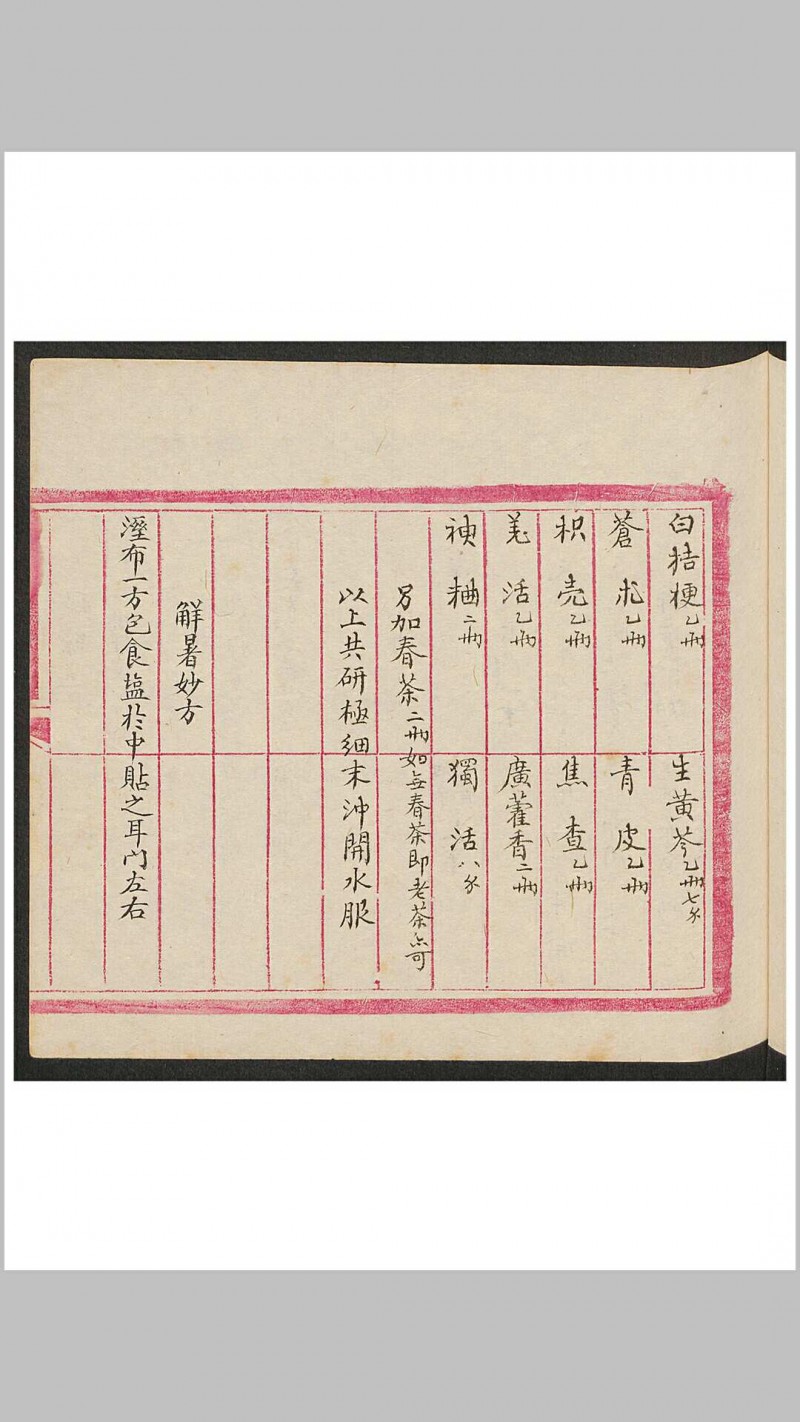 白桔梗乙兩　生黃芩乙兩七分
蒼朮乙兩　青皮乙兩
枳壳乙兩　焦查乙兩
羌活乙兩　廣藿香二兩
神粬二兩　獨活八分
另加春茶二兩如无春茶即老茶亦可
以上共研極細末沖開水服
解暑妙方
溼布一方包食塩於中貼之耳門左右